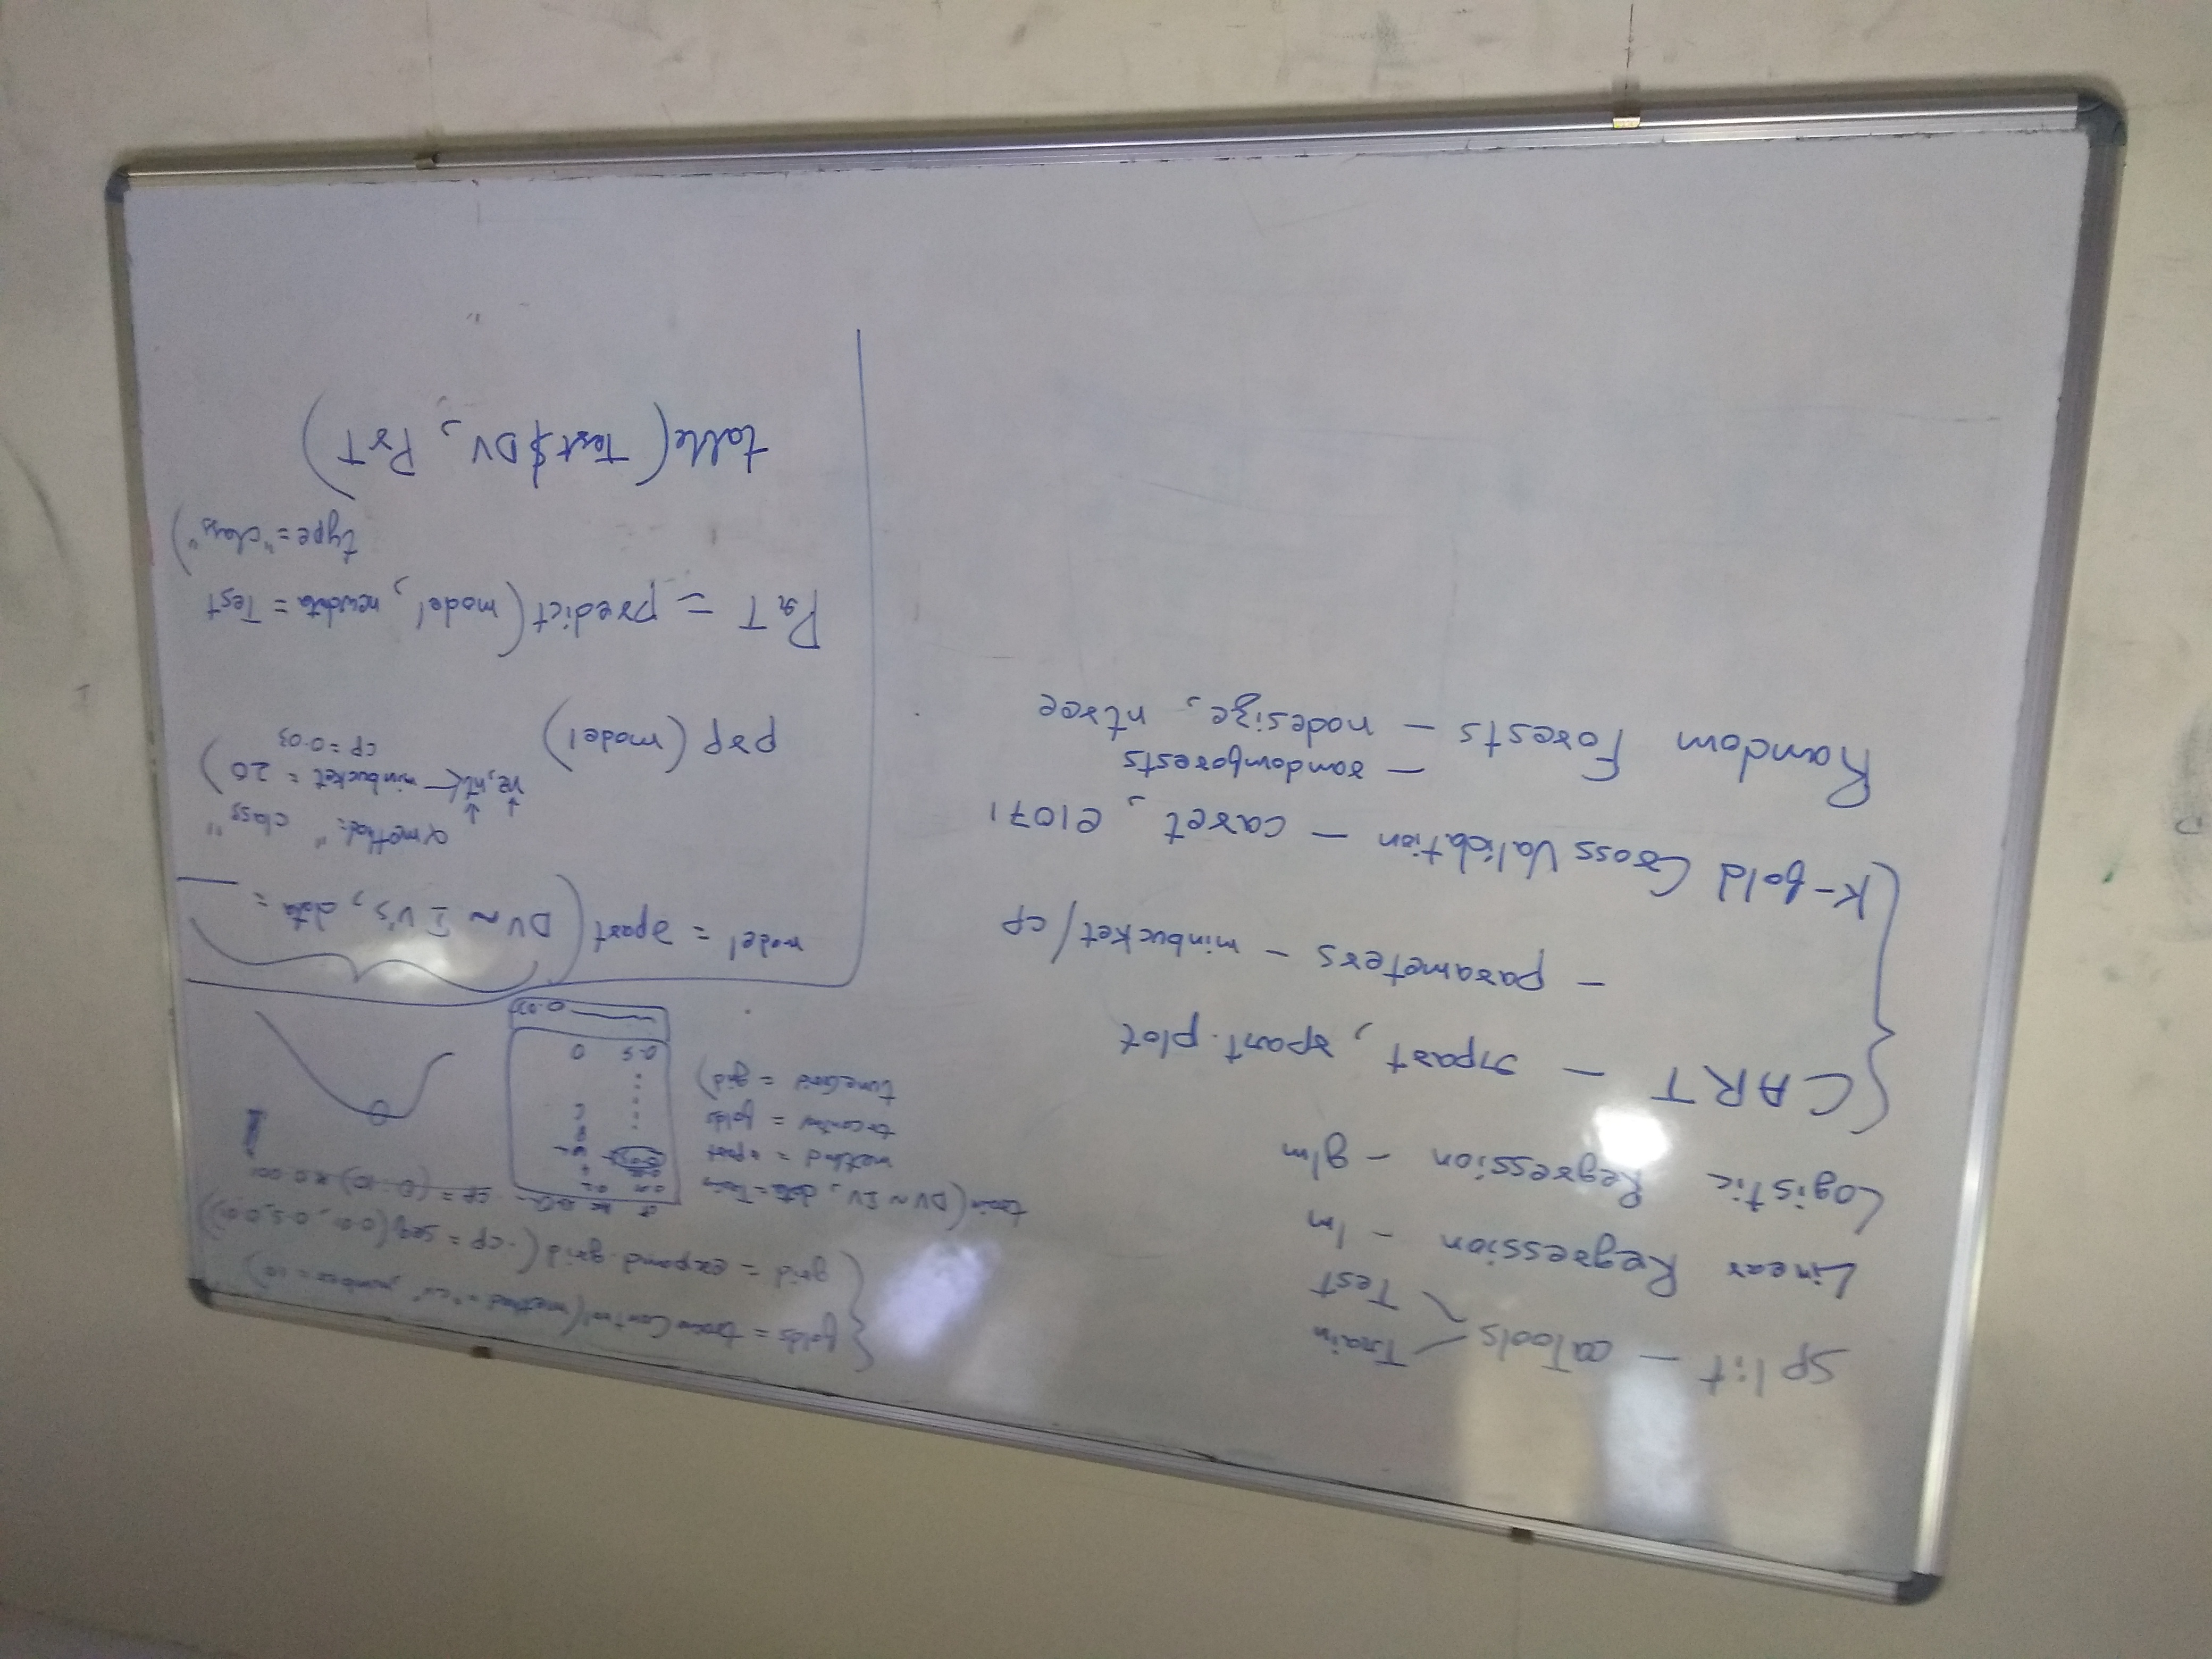 split – caTools Train
Test
Linear Regression – lm
Logistic Regression – glm
CART – rpart, rpart.plot
– parameters – minbucket/cp
K-fold Cross Validation – caret, e1071
– randomforests
Random Forests – nodesize, ntree
folds = trainControl(method = "cv", number = 10)
grid = expand.grid(.cp = seq(0.01, 0.5, 0.01))
train(DV ~ IV, data = Train
method = rpart
trControl = folds
tuneGrid = grid)
cp = (0-10) × 0.001
0.5 0
model = rpart(DV ~ IV's, data = __
method: "class"
minbucket = 20)
cp = 0.03
prp(model)
PrT = predict(model, newdata = Test
type = "class")
table(Test$DV, PrT)